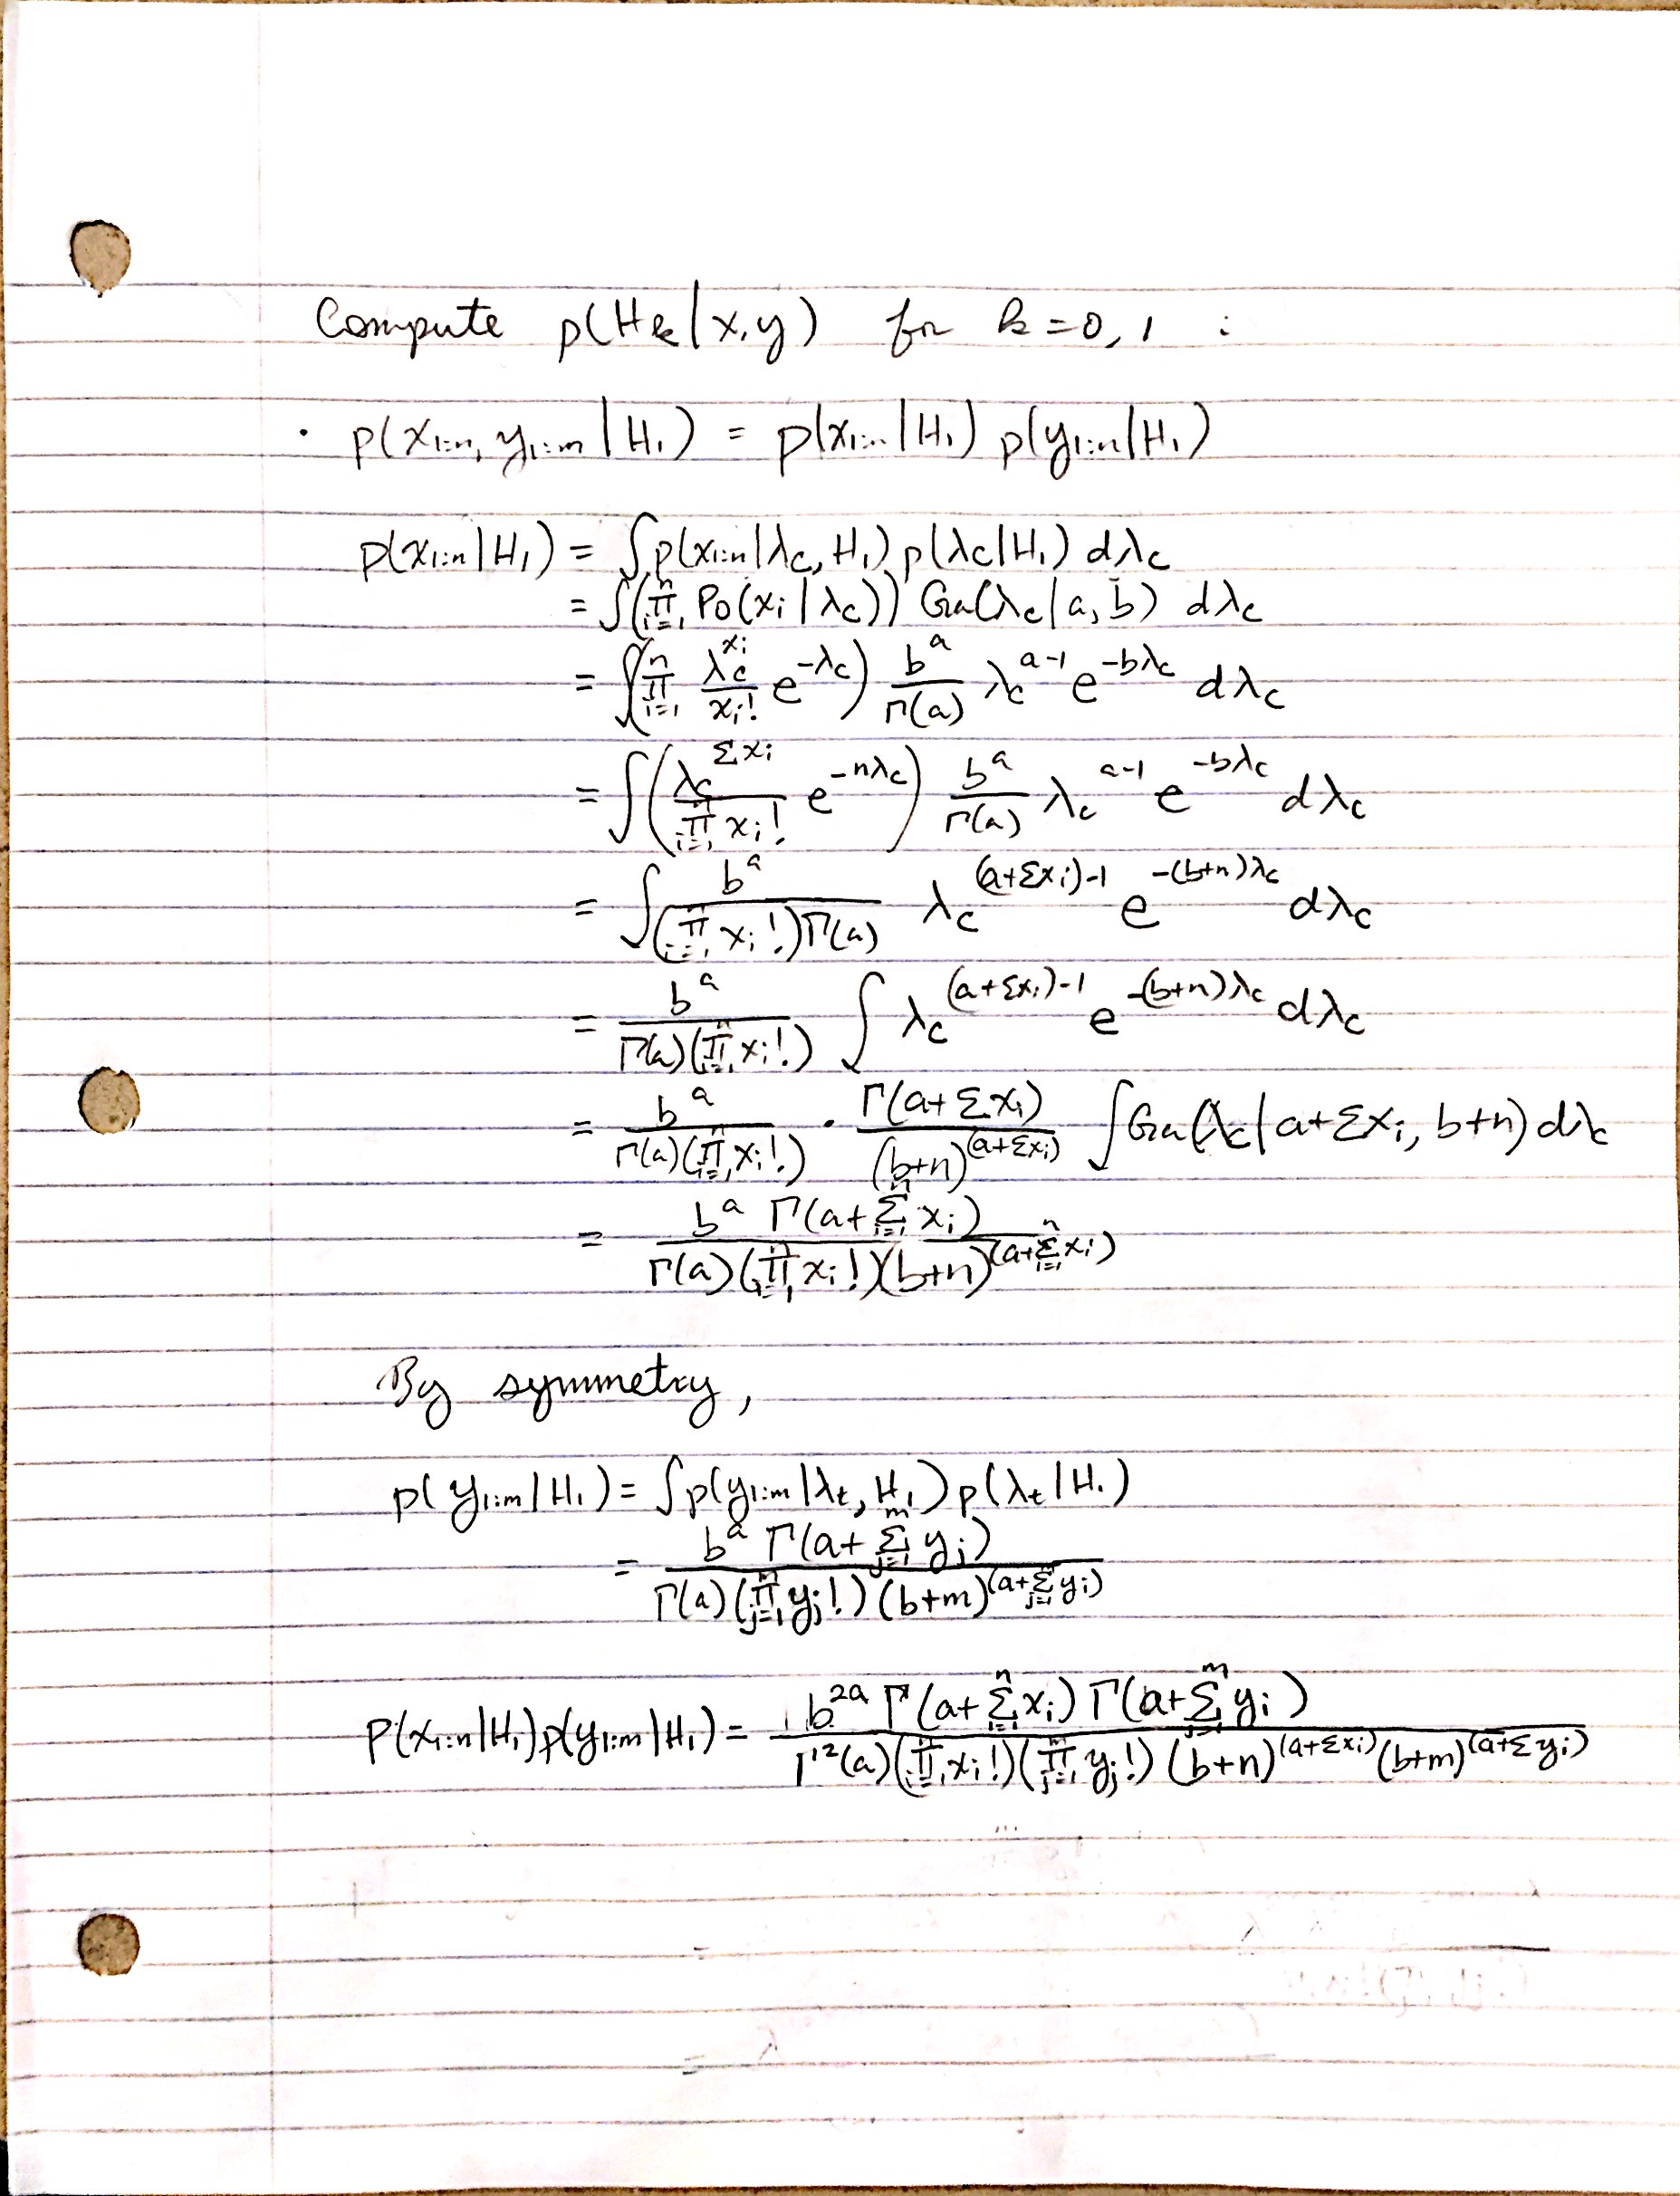 Compute p(H_k | x, y) for k = 0, 1 :
· p(x_{1:n}, y_{1:m} | H_1) = p(x_{1:n} | H_1) p(y_{1:n} | H_1)
p(x_{1:n} | H_1) = ∫ p(x_{1:n} | λ_c, H_1) p(λ_c | H_1) dλ_c
= ∫ (∏_{i=1}^{n} Po(x_i | λ_c)) Ga(λ_c | a, b) dλ_c
= ∫ (∏_{i=1}^{n} \frac{λ_c^{x_i}}{x_i!} e^{-λ_c}) \frac{b^a}{Γ(a)} λ_c^{a-1} e^{-bλ_c} dλ_c
= ∫ (\frac{λ_c^{Σx_i}}{∏_{i=1}^{n} x_i!} e^{-nλ_c}) \frac{b^a}{Γ(a)} λ_c^{a-1} e^{-bλ_c} dλ_c
= ∫ \frac{b^a}{(∏_{i=1}^{n} x_i!)Γ(a)} λ_c^{(a+Σx_i)-1} e^{-(b+n)λ_c} dλ_c
= \frac{b^a}{Γ(a)(∏_{i=1}^{n} x_i!)} ∫ λ_c^{(a+Σx_i)-1} e^{-(b+n)λ_c} dλ_c
= \frac{b^a}{Γ(a)(∏_{i=1}^{n} x_i!)} · \frac{Γ(a+Σx_i)}{(b+n)^{(a+Σx_i)}} ∫ Ga(λ_c | a+Σx_i, b+n) dλ_c
= \frac{b^a Γ(a+Σ_{i=1}^{n} x_i)}{Γ(a)(∏_{i=1}^{n} x_i!)(b+n)^{(a+Σ_{i=1}^{n} x_i)}}
By symmetry,
p(y_{1:m} | H_1) = ∫ p(y_{1:m} | λ_t, H_1) p(λ_t | H_1)
= \frac{b^a Γ(a+Σ_{j=1}^{m} y_j)}{Γ(a)(∏_{j=1}^{m} y_j!)(b+m)^{(a+Σ_{j=1}^{m} y_j)}}
p(x_{1:n} | H_1) p(y_{1:m} | H_1) = \frac{b^{2a} Γ(a+Σ_{i=1}^{n} x_i) Γ(a+Σ_{j=1}^{m} y_j)}{Γ^2(a)(∏_{i=1}^{n} x_i!)(∏_{j=1}^{m} y_j!)(b+n)^{(a+Σx_i)}(b+m)^{(a+Σy_j)}}